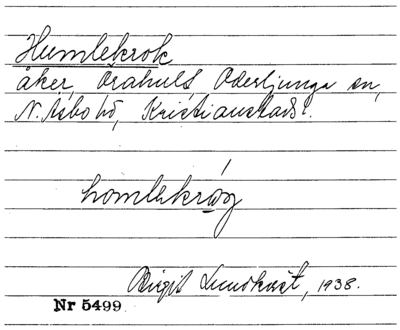 Humlekrok
åker, Örahult, Oderljunga sn,
N. Åsbo hd, Kristianstads l.
homlekråg
Birgit Lundkvist, 1938.
Nr 5499